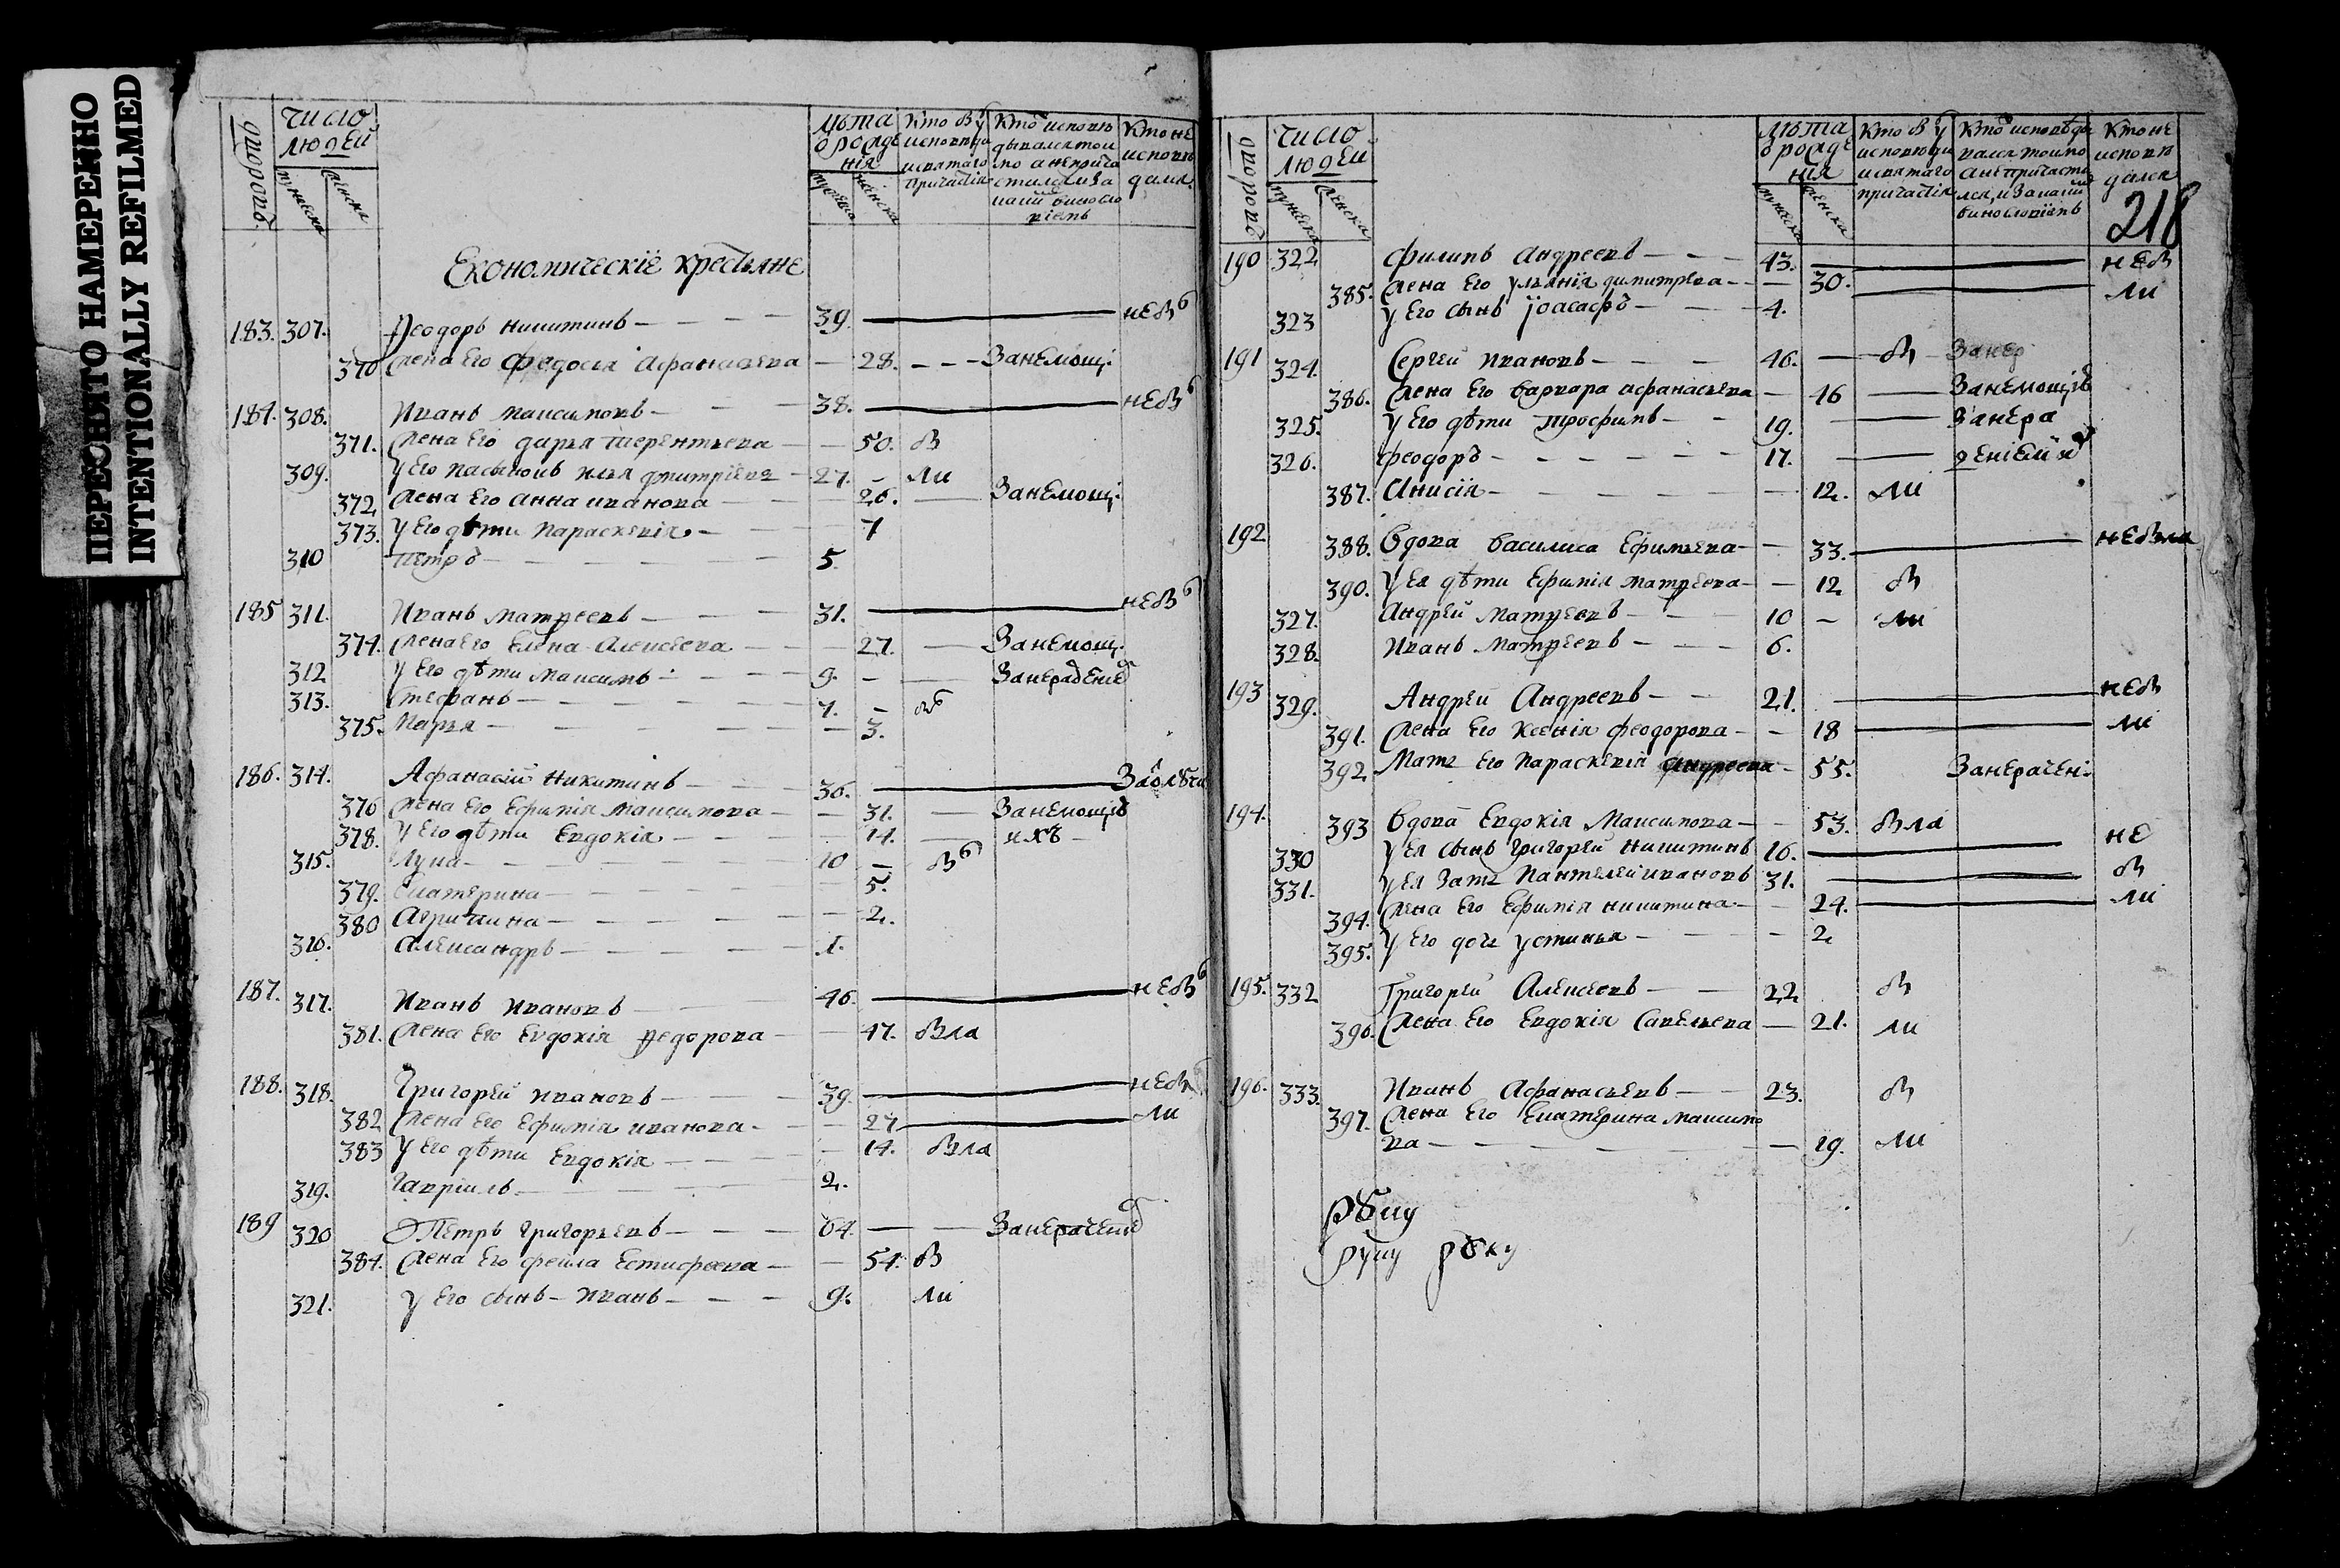 ПЕРЕСНЯТО НАМЕРЕННО
INTENTIONALLY REFILMED
дворовъ
число людей
мужеска
женска
лѣта ѿ рожденія
мужеска
женска
Кто в у исповѣди и святаго причастія
Кто исповѣдывался токмо а не причастился и за каким винословіемъ
Кто не исповѣдался
Економическіе крестьяне
183. 307. Ѳеодоръ никитинъ — — — 39. — не бы
370 жена его федосья афанасьева — 28. — — За немощ.
184. 308. Иванъ максимовъ — — — 38. — не бы
371. жена его дарья терентьева — 50. бы
309. у его пасынокъ илья дмитріевъ — 27. — ли
372. жена его анна иванова — 26. — За немощ.
373. у его дѣти параскевія — — 7
310 петръ — — — 5.
185 311. Иванъ матѳеевъ — — 31. — не бы
374. жена его елена алексеева — 27. — За немощ.
312 у его дѣти максимъ — — 9. — — За нерадение
313. стефанъ — — — 7. — бы
375. марья — — — 3.
186. 314. Афанасій никитинъ — — 36. — За
376 жена его ефимія максимова — 31. — За немощ
378. у его дѣти евдокія — — 14.
315. лука — — — 10 — бы
379. екатерина — — — 5.
380 агрипина — — — 2.
316. александръ — — — 1.
187. 317. Иванъ ивановъ — — 46. — не бы
381. жена его евдокія ѳедорова — 47. была
188. 318. Григорей ивановъ — — 39. — не бы
382 жена его ефимія иванова — 27 — ли
383 у его дѣти евдокія — — 14. была
319. гавріилъ — — 2.
189 320 Петръ григорьевъ — — 64. — — За нерачение
384. жена его фекла естифеева — 54. бы
321. у его сынъ — иванъ — — 9. ли
дворовъ
число людей
мужеска
женска
лѣта ѿ рожденія
мужеска
женска
Кто в у исповѣди и святаго причастія
Кто исповѣдывался токмо а не причастился, и за каким винословіемъ
Кто не исповѣдался
218
190 322 филипъ андреевъ — — 43. — не бы
385. жена его ульянія димитрева — — 30. — ли
323 у его сынъ іоасафъ — — 4.
191 324. Сергей ивановъ — — 46. — бы За нер
386. жена его варвара афанасьева — 46 — За немощ
325. у его дѣти трофимъ — — 19. — За нера
326. феодоръ — — — 17. — дениемъ
387. Анисія — — — 12. ли
192 388. Вдова василиса ефимьева — 33. — не была
390. у ея дѣти ефимія матѳеева — — 12 бы
327. андрей матѳеевъ — — 10 — ли
328. иванъ матѳеевъ — — 6.
193 329. Андрей андреевъ — — 21. — не бы
391. жена его ксенія феодорова — — 18 — ли
392 мать его параскевія андреева — 55. За нерачен.
194. 393 Вдова евдокія максимова — — 53. была
330 у ея сынъ григорей никитинъ 16. — не
331. у ея зять пантелей ивановъ 31. — бы
394. жена его ефимія никитина — 24. — ли
395. у его дочь устинья — — — 2
195. 332 Григорей алексеевъ — — 22 бы
396. жена его евдокія савельева — 21. ли
196. 333. Иванъ афанасьевъ — — 23. бы
397. жена его екатерина максимо
ва — — — 19. ли
руку